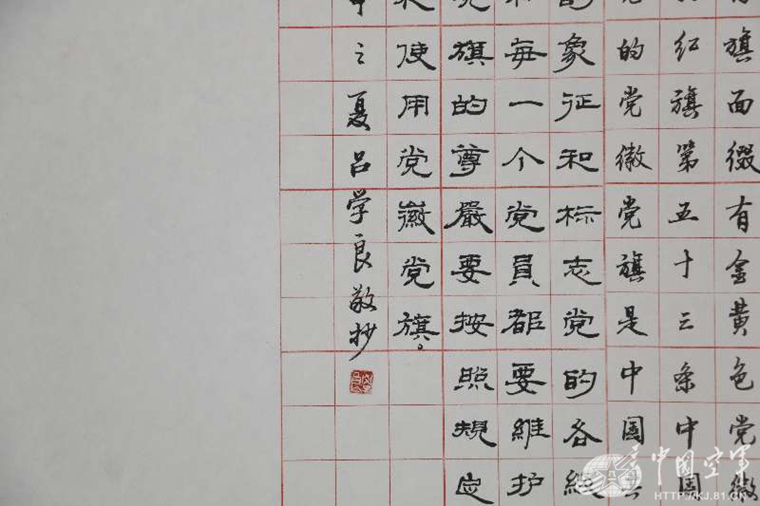 旗面缀有金黄色党徽
红旗第五十三条中国
的党徽党旗是中国共
的象征和标志党的各级
和每一个党員都要維护
党旗的尊嚴要按照规定
使用党徽党旗。
之夏吕学良敬抄
中国空军
HTTP://KJ.81.CN